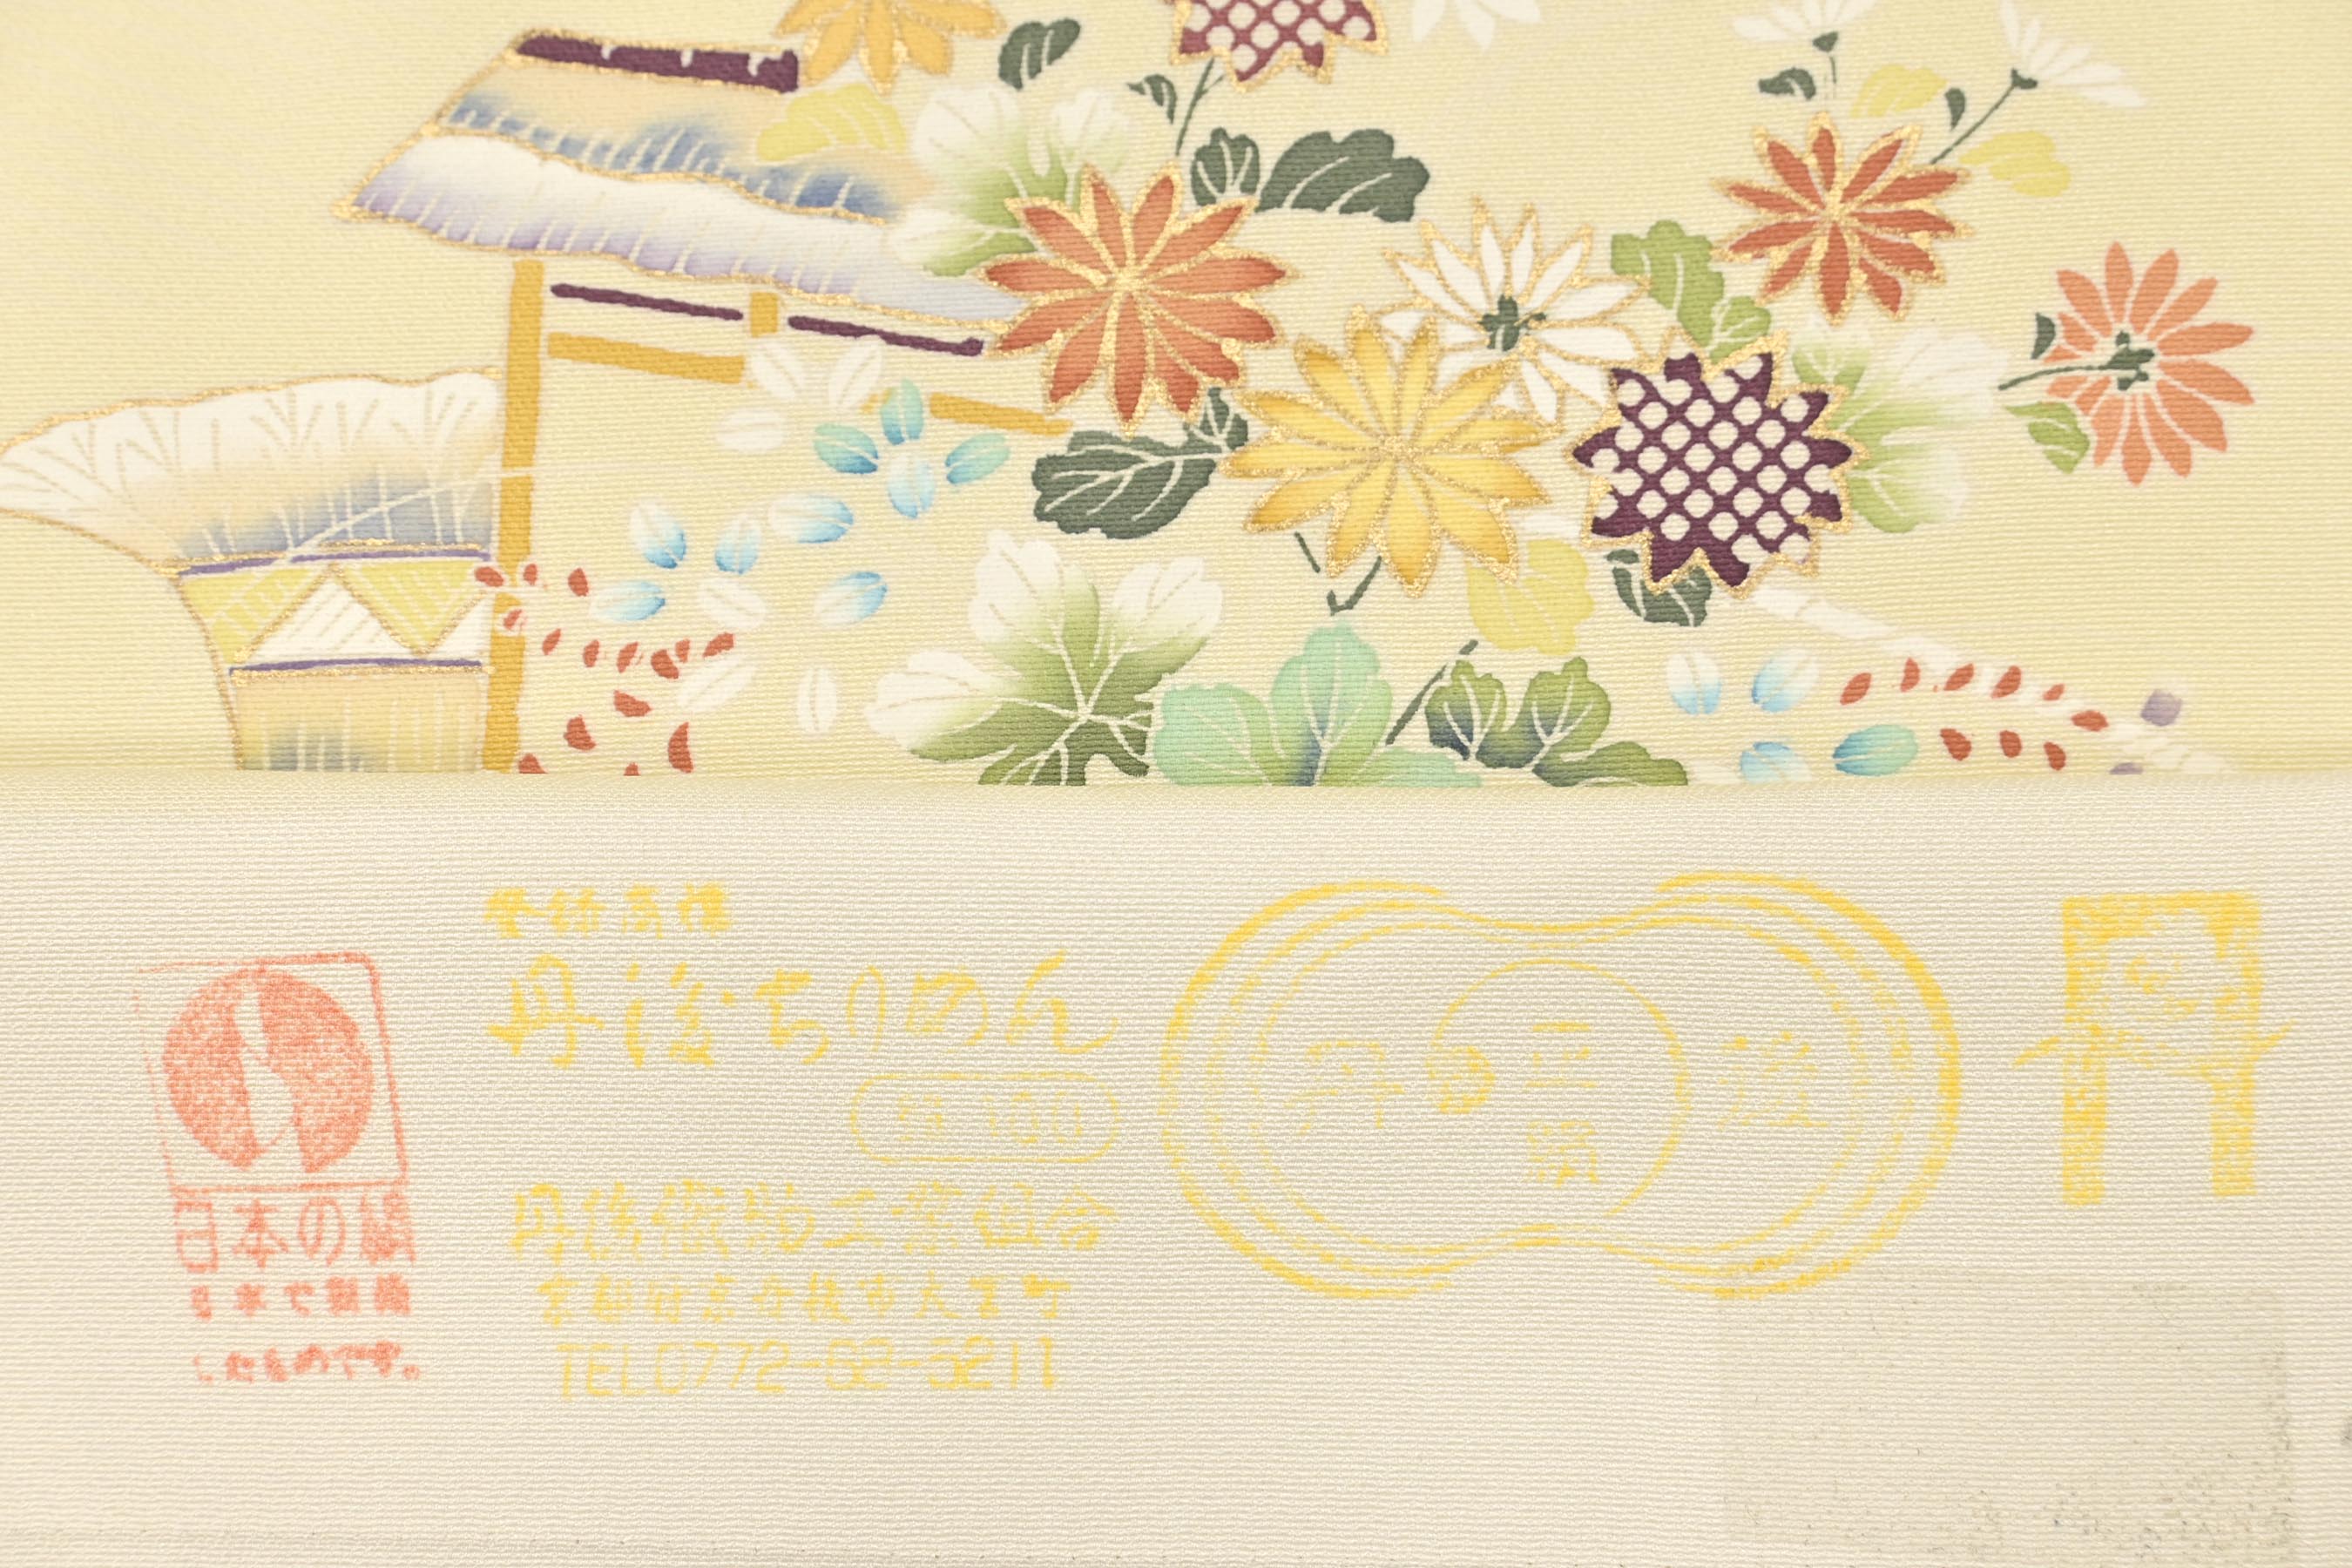 日本の絹
日本で製織
したものです。
登録商標
丹後ちりめん
絹 100
丹後織物工業組合
京都府京丹後市大宮町
TEL0772-68-5211
丹 正絹 後